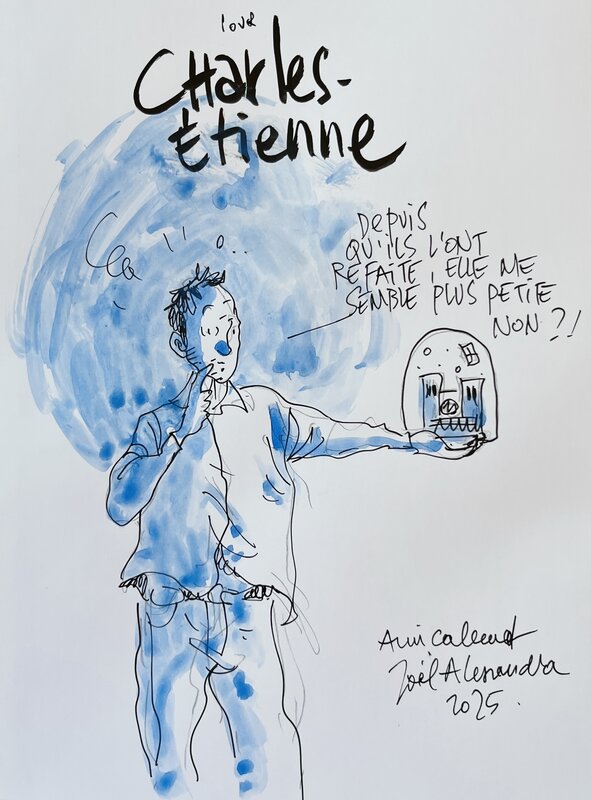 Pour
CHarles-
Etienne
DEPUIS
QU'ILS L'ONT
REFAITE, ELLE ME
SEMBLE PLUS PETITE
NON ?!
Amicalement
Joël Alessandra
2025.